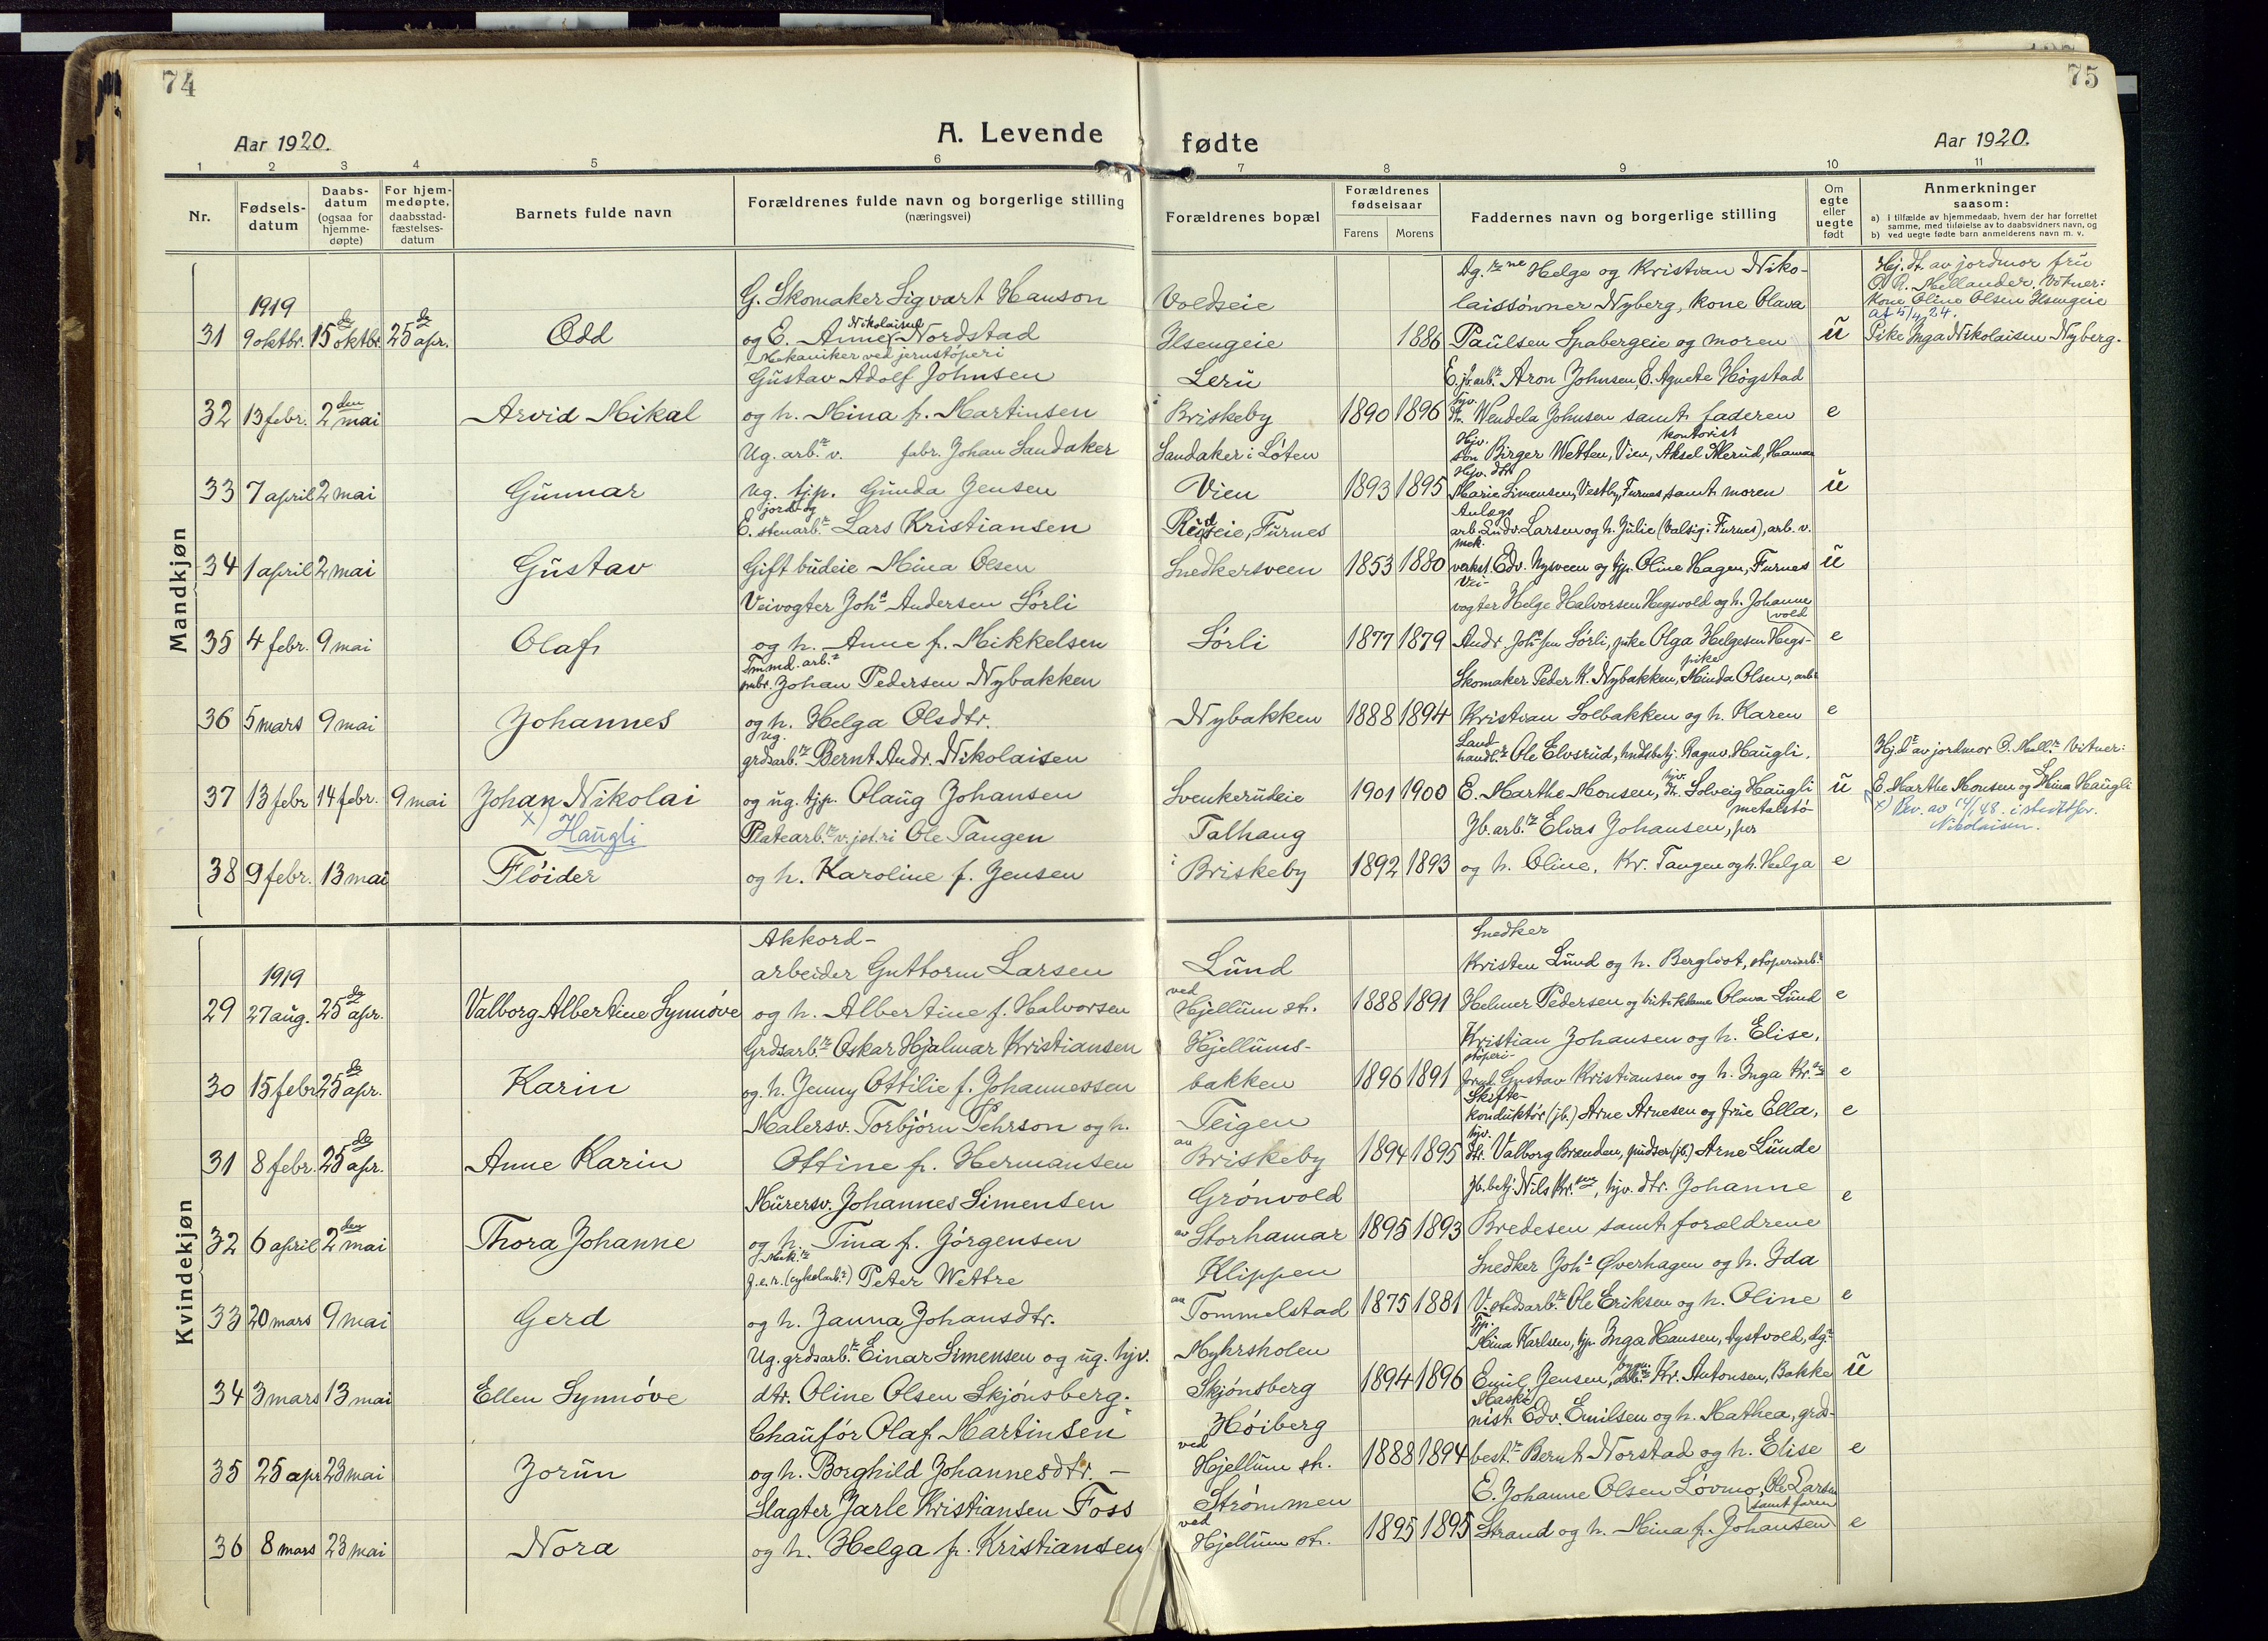 74
75
Aar 1920.
A. Levende
fødte
Aar 1920.
1 2 3 4 5 6 7 8 9 10 11
Nr.
Fødsels-
datum
Daabs-
datum
(ogsaa for
hjemme-
døpte)
For hjem-
medøpte,
daabsstad-
fæstelses-
datum
Barnets fulde navn
Forældrenes fulde navn og borgerlige stilling
(næringsvei)
Forældrenes bopæl
Forældrenes
fødselsaar
Farens Morens
Faddernes navn og borgerlige stilling
Om
egte
eller
uegte
født
Anmerkninger
saasom:
a) i tilfælde av hjemmedaab, hvem der har forrettet
samme, med tilføielse av to daabsvidners navn, og
b) ved uegte fødte barn anmelderens navn m. v.
Mandkjøn
1919
31 9 oktbr. 15 de oktbr. 25 de apr. Odd
G. Skomaker Sigvart Hanson
og E. Anne Nikolaisen Nordstad
Voldseie
Ilsengeie
1886
Helge og Kristian Niko-
laissønner Nyberg, kone Olava
Paulsen Spabergeie og moren
u
Hj. dt. av jordmor fru
Mellander. Vitner:
Kone Oline Olsen Ilsengeie
Pike Inga Nikolaisen Nyberg.
32 13 febr. 2 den mai Arvid Mikal
Mekaniker ved jernstøperi
Gustav Adolf Johnsen
og h. Mina f. Martinsen
Leru
i Briskeby
1890 1896
E. jb. arb.r Aron Johnsen, E. Agnete Høgstad
Wendela Johnsen samt faderen
e
33 7 april 2 mai Gunnar
Ug. arb.r v. fabr. Johan Sandaker
ug. tjp. Gunda Jensen
Sandaker i Løten
Vien
1893 1895
Hjv.
søn Birger Wetten, Vien, kontorist Aksel Skerud, Hamar
Hjv. dtr
Marie Simensen, Vestby, Furnes, samt moren
u
34 1 april 2 mai Gustav
E. jord og stenarb.r Lars Kristiansen
Gift budeie Mina Olsen
Rudseie, Furnes
Snedkersveen
1853 1880
Anlægs
arb. Ludv. Larsen og h. Julie (Valsig i Furnes), arb. v.
mek.
vekst. Edv. Nysveen og tjp. Oline Hagen, Furnes
u
35 4 febr. 9 mai Olaf
Veivogter Joh.s Andersen Sørli
og h. Anne f. Mikkelsen
Sørli
1877 1879
Vei-
vogter Helge Halvorsen Hegsvold og h. Johanne
Andr. Joh.sen Sørli, pike Olga Helgesen Hegs-
vold
e
36 5 mars 9 mai Johannes
Tømmd. arb.r
Johan Pedersen Nybakken
og h. Helga Olsdtr.
Nybakken
1888 1894
Skomaker Peder K. Nybakken, pike Minda Olsen, arbr
Kristian Solbakken og h. Karen
e
37 13 febr 14 febr. 9 mai Johan Nikolai
x) Haugli
ug.
grdsarb.r Bernt Andr. Nikolaisen
og ug. tjp. Olaug Johansen
Svenkerudeie
1901 1900
Land
handl.r Ole Elvsrud, hndsbetj. Ragnv. Haugli.
E. Marthe Monsen, hjv. dtr. Solveig Haugli
u
Hj. dt av jordmor Vitner:
E. Marthe Monsen og Mina Haugli
x) Bev. av 14/1 48. i stedetfor
Nikolaisen.
38 9 febr. 13 mai Fløider
Platearb.r v. jst.ri Ole Tangen
og h. Karoline f. Jensen
Talhaug
i Briskeby
1892 1893
Jb. arb.r Elias Johansen, metalstø-
per
og h. Oline, Kr. Tangen og h. Helga
e
Kvindekjøn
1919
29 27 aug. 25 de apr. Valborg Albertine Synnøve
Akkord-
arbeider Guttorm Larsen
og h. Albertine f. Halvorsen
Lund
ved Hjellum st.
1888 1891
Snedker
Kristen Lund og h. Bergliot, støperiarb.r
Helmer Pedersen og Olava Lund
e
30 15 febr 25 de apr. Karin
Grdsarb.r Oskar Hjalmar Kristiansen
og h. Jenny Ottilie f. Johannessen
Hjellums-
bakken
1896 1891
Kristian Johansen og h. Elise,
støperi-
Gustav Kristiansen og h. Inga Kr.sen
e
31 8 febr. 25 de apr. Anne Karin
Malersv. Torbjørn Pehrson og h.
Ottine f. Hermansen
Teigen
av Briskeby
1894 1895
Skifte-
konduktør (jb.) Arne Arnesen og frue Ella,
hjv.
dtr. Valborg Branden, pudser (jb.) Arne Lunde
e
32 6 april 2 den mai Thora Johanne
Murersv. Johannes Simensen
og h. Tina f. Jørgensen
Grønvold
av Storhamar
1895 1893
Jb. betj. Nils Kr.sen, hjv. dtr. Johanne
Bredesen samt forældrene
e
33 20 mars 9 mai Gerd
Mek.r
(cykelarb.r) Peter Wettre
og h. Janna Johansdtr.
Klippen
av Tommelstad
1875 1881
Snedker Joh.s Øverhagen og h. Ida
V. stedsarb.r Ole Eriksen og h. Oline
e
34 3 mars 13 mai Ellen Synnøve
Ug. grdsarb.r Einar Simensen og ug. hjv.
dtr. Oline Olsen Skjønsberg.
Myhrsholen
Skjønsberg
1894 1896
Tjp.
Mina Karlsen, tjp. Inga Hansen, Lystvold, dg.r
Emil Jensen, Kr. Antonsen, Bakke
u
35 25 apr 23 mai Jorun
Chaufør Olaf Martinsen
og h. Borghild Johannesdtr. —
Høiberg
ved Hjellum st.
1888 1894
Maski
nist Edv. Emilsen og h. Mathea, grds-
best.r Bernt Norstad og h. Elise
e
36 8 mars 23 mai Nora
Slagter Jarle Kristiansen Foss
og h. Helga f. Kristiansen
Strømmen
ved Hjellum st.
1895 1895
E. Johanne Olsen Løvmo, Ole Larsen
Strand og h. Mina f. Johansen samt faren
e